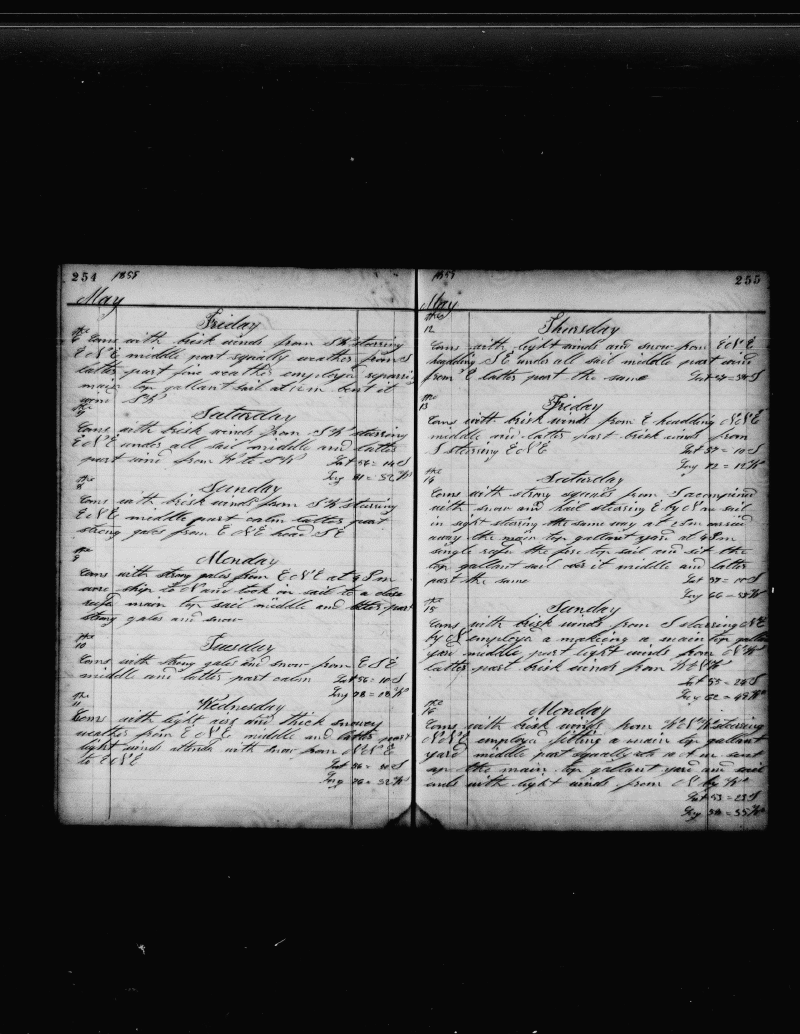 254 1855
May
Friday
the 6 Coms with brisk winds from SW stearring
E N E middle part squally weather from S
latter part fine weather employed repairin
main top gallant sail at 12 m bent it
wind SW
Saturday
the 7
Coms with brisk winds from SW stearring
E N E under all sail middle and latter
part wind from W to SW Lat 56 = 14 S
Long 81 = 52 W
Sunday
the 8
Coms with brisk winds from SW stearring
E N E middle part calm latter part
strong gales from E N E head S E
Monday
the 9
Coms with strong gales from E N E at 4 P m
wore ship to N and took in sail to a close
reefed main top sail middle and latter part
strong gales and snow
Tuesday
the 10
Coms with strong gales and snow from E S E
middle and latter part calm Lat 56 = 10 S
Long 78 = 18 W
Wednesday
the 11
Coms with light airs and thick snowey
weather from E N E middle and latter part
light winds attended with snow from N N E
to E N E Lat 56 = 30 S
Long 76 = 52 W
1855 255
May
the 12 Thursday
Coms with light winds and snow from E N E
headding S E under all sail middle part wind
from E latter part the same Lat 57 = 58 S
Friday
the 13
Coms with brisk winds from E headding N N E
middle and latter part brisk winds from
S stearring E N E Lat 57 = 10 S
Long 72 = 12 W
Saturday
the 14
Coms with strong squalls from S accompined
with snow and hail stearing E by N on sail
in sight stearing the same way at 2 P m carried
away the main top gallant yard at 4 P m
single reefed the fore top sail and set the
top gallant sail over it middle and latter
part the same Lat 57 = 00 S
Long 66 = 58 W
Sunday
the 15
Coms with brisk winds from S stearring N E
by N employed a makeing a main top gallan
yard middle part light winds from N W
latter part brisk winds from W N W
Lat 55 = 26 S
Long 62 = 49 W
Monday
the 16
Coms with brisk winds from W N W stearring
N N E employed fitting a main top gallant
yard middle part squally at 10 A m sent
up the main top gallant yard and sail
ends with light winds from N by W
Lat 53 = 23 S
Long 58 = 55 W